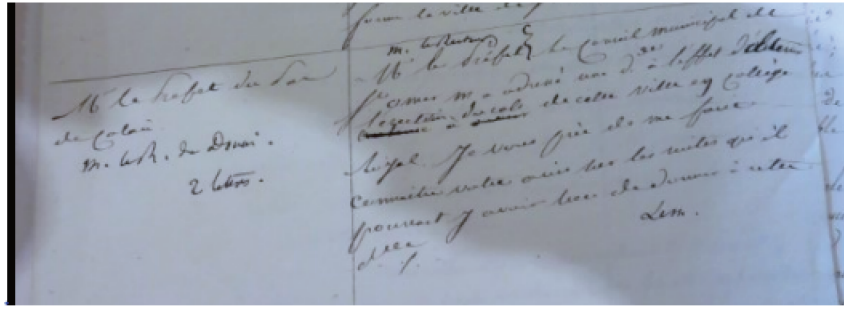 fonne la ville de
M. le Préfet du Pas
de Calais
M. le R. de Douai.
2 lettres.
M. le Recteur
Mr le Préfet, le Conseil municipal de
St omer m'a adressé une d. de à l'effet d'obtenir
l'érection du col. de cette ville en collège
royal. Je vous prie de me faire
connaître votre avis sur les suites qu'il
pourrait y avoir lieu de donner à cette
dde